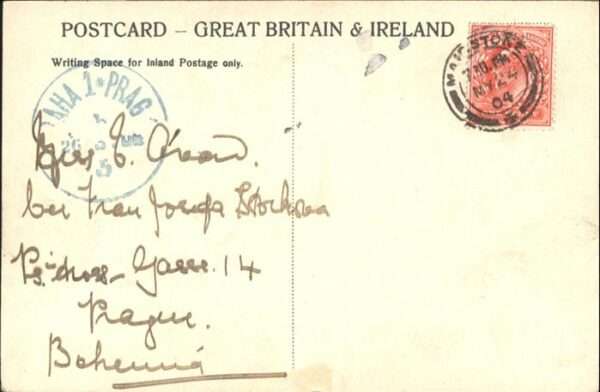 POSTCARD — GREAT BRITAIN & IRELAND
Writing Space for Inland Postage only.
PRAHA 1 * PRAG
26 5
MAIDSTONE
7.10 PM
MY 24
04
Miss E.
bei Frau Josefa
Gasse. 14
Prague.
Bohemia